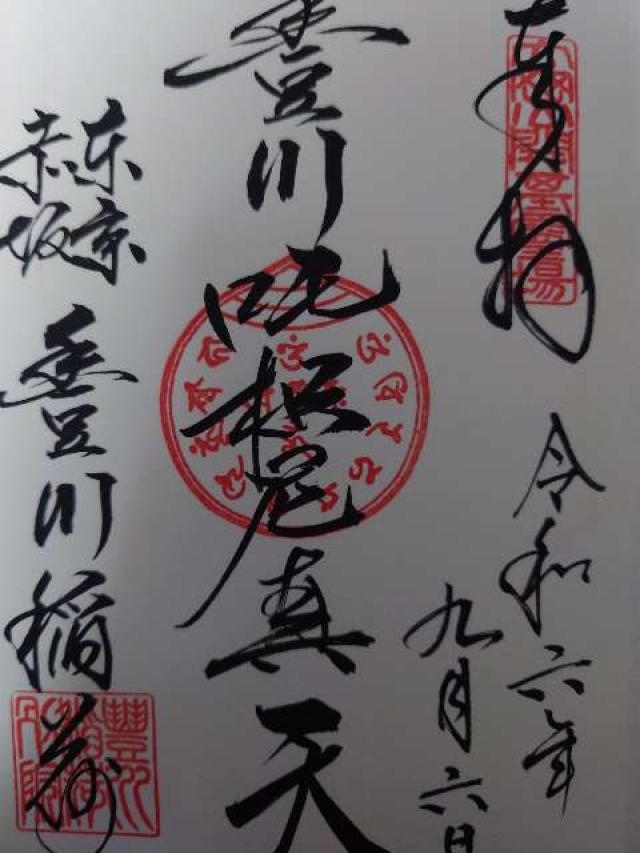 奉拝
令和六年
九月六日
豊川吒枳尼真天
東京
赤坂
豊川稲荷